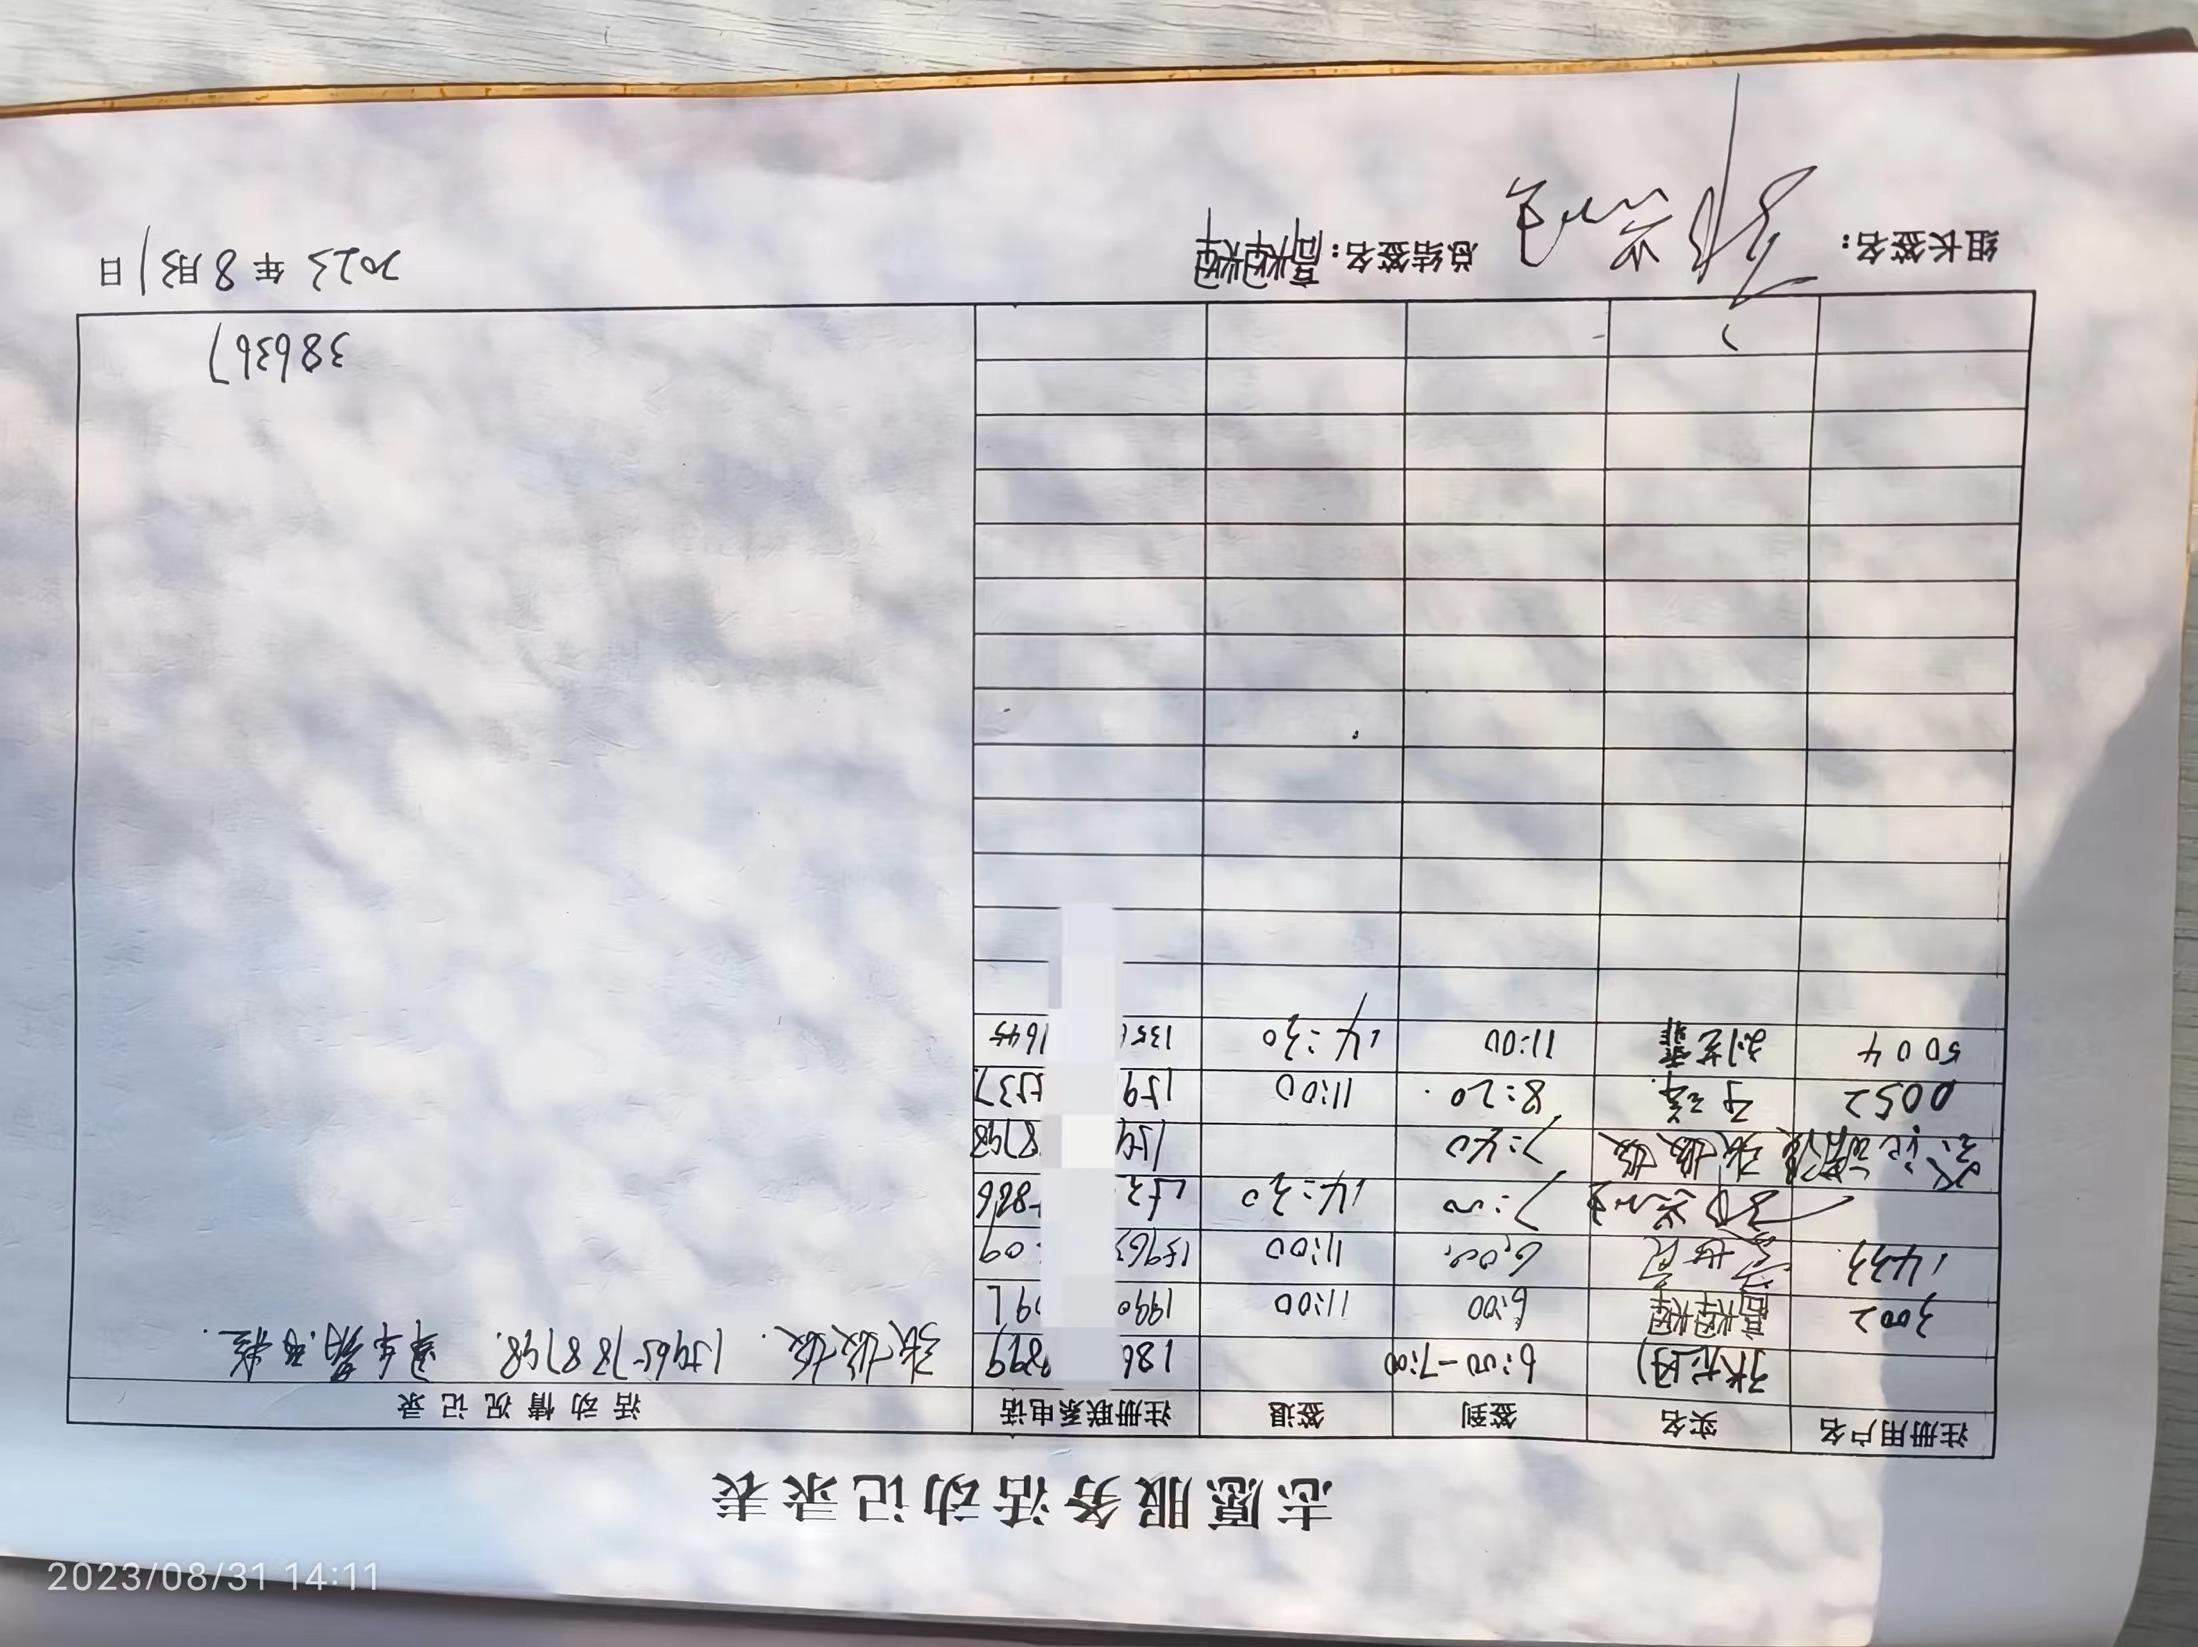 志愿服务活动记录表
注册用户名 实名 签到 签退 注册联系电话 活动情况记录
6:00-7:00 186 899 张姣姣. 15965788798.
3002 高耀辉 6:00 11:00 1990 91
1433 6:00 11:00 15963 09
7:00 14:30 53 886
张姣姣 7:40 159 8798
0052 8:20 11:00 159 537
5004 刘艺霏 11:00 14:30 135 1645
386367
组长签名: 总结签名:高耀辉 2023年8月31日
2023/08/31 14:11